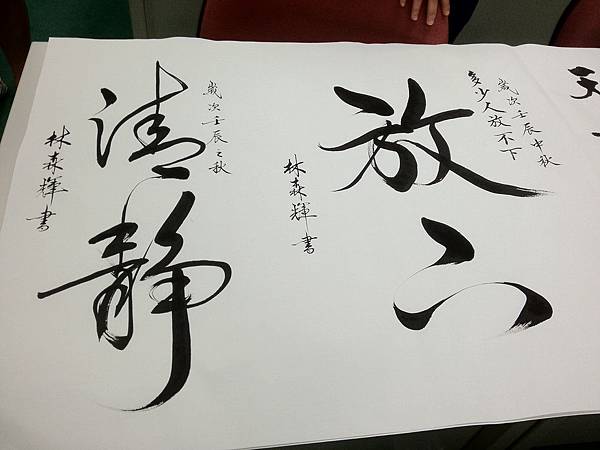 歲次壬辰中秋
多少人放不下
放下
林森輝書
歲次壬辰之秋
清靜
林森輝書